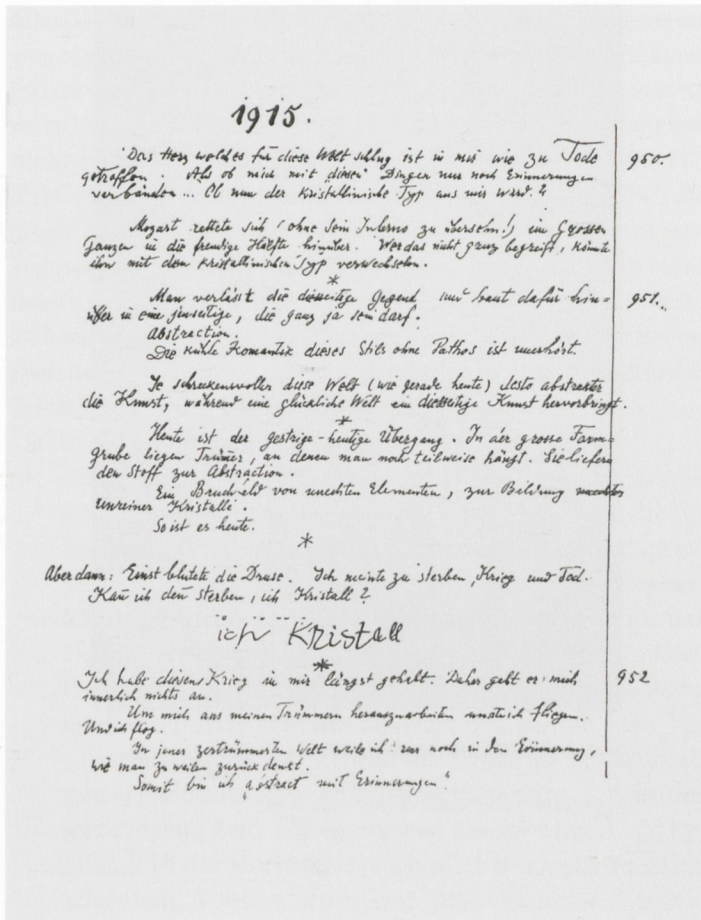 1915.
Das Herz welches für diese Welt schlug ist in mir wie zu Tode 950.
getroffen. Als ob mich mit "diesen" Dingen nur noch Erinnerungen
verbänden ... Ob nun der kristallinische Typ aus mir wird. ?
Mozart rettete sich (ohne sein Inferno zu übersehn!) im Grossen
Ganzen in die freudige Hälfte hinüber. Wer das nicht ganz begreift, könnte
ihn mit dem kristallinischen Typ verwechseln.
*
Man verlässt die diesseitige Gegend und baut dafür hin- 951.
über in eine jenseitige, die ganz ja sein darf.
Abstraction.
Die kühle Romantik dieses Stils ohne Pathos ist unerhört.
Je schreckensvoller diese Welt (wie gerade heute) desto abstracter
die Kunst, während eine glückliche Welt ein diesseitige Kunst hervorbringt.
*
Heute ist der gestrige-heutige Übergang. In der grosse Form-
grube liegen Trümer, an denen man noch teilweise hängt. Sie liefern
den Stoff zur Abstraction.
Ein Bruchfeld von unechten Elementen, zur Bildung
unreiner Kristalle.
So ist es heute.
*
Aber dann: Einst blutete die Druse. Ich meinte zu sterben, Krieg und Tod.
Kañ ich deñ sterben, ich Kristall?
ich Kristall
*
Ich habe diesen Krieg in mir längst gehabt. Daher geht er mich 952
innerlich nichts an.
Um mich aus meinen Trümmern herauszuarbeiten musste ich fliegen.
Und ich flog.
In jener zertrümmerten Welt weile ich nur noch in der Erinnerung,
wie man zuweilen zurückdenkt.
Somit bin ich "abstract mit Erinnerungen".